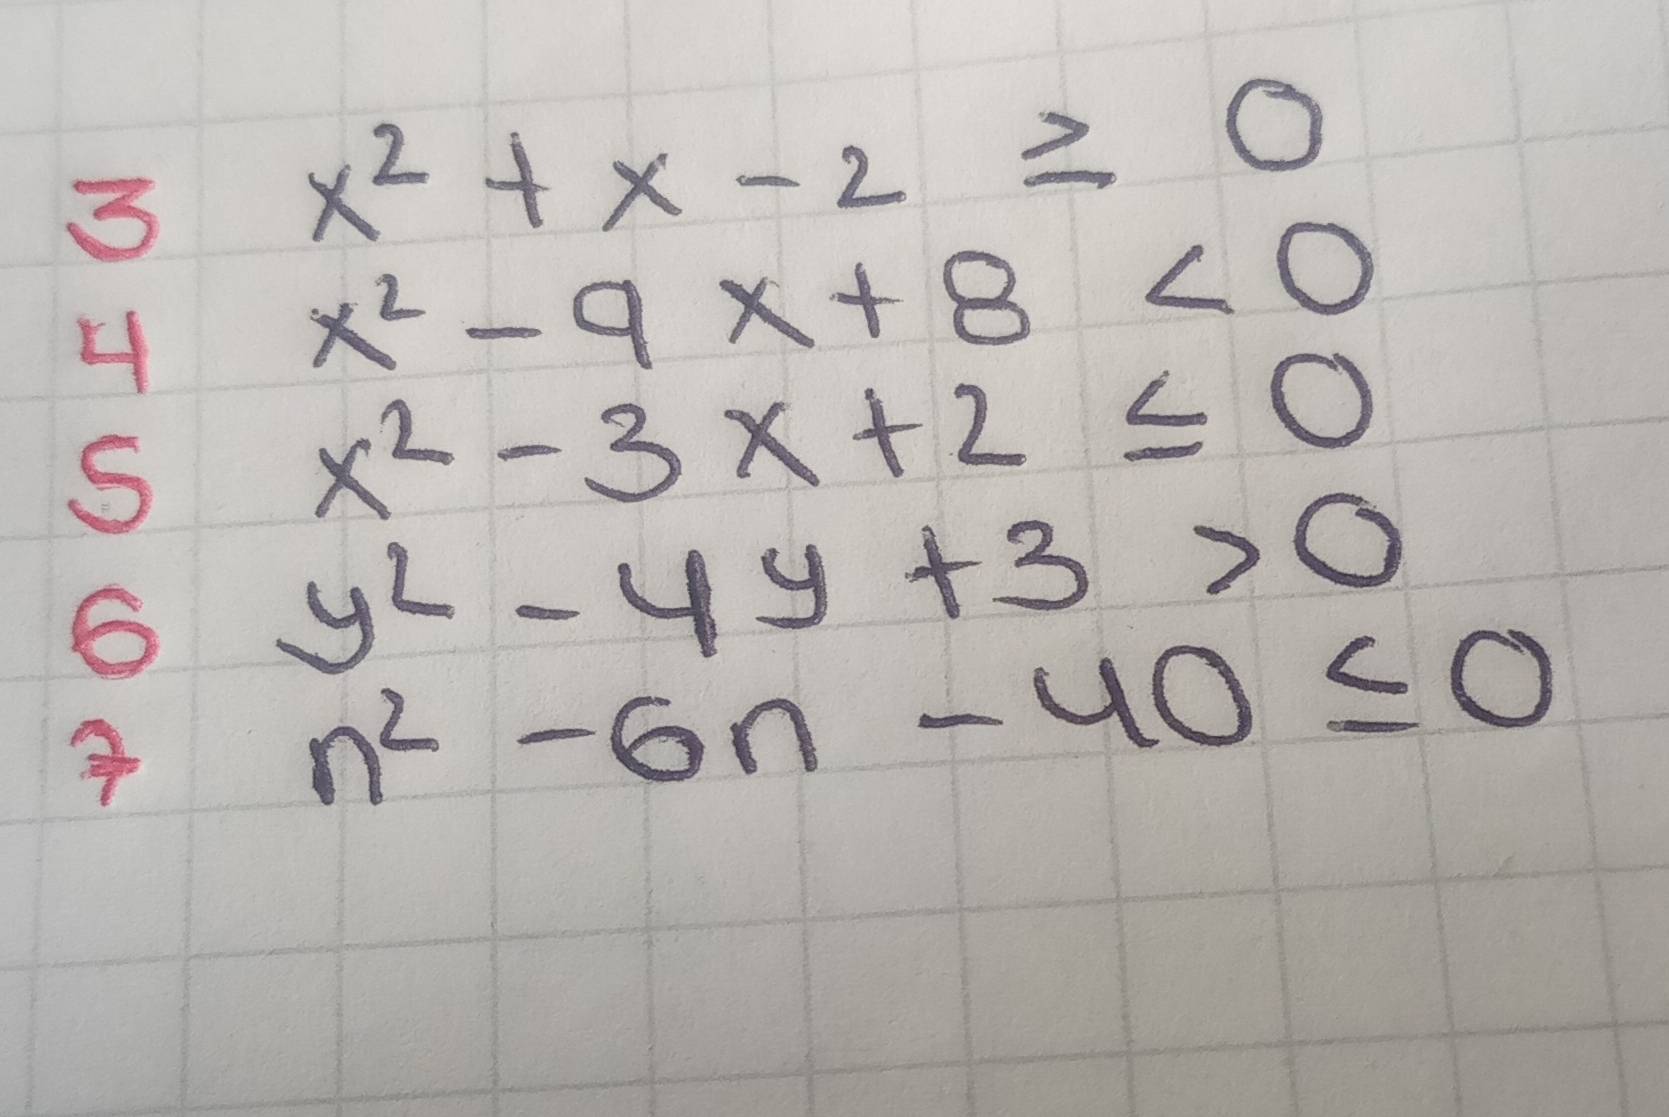 3 x² + x - 2 ≥ 0
4 x² - 9x + 8 < 0
5 x² - 3x + 2 ≤ 0
6 y² - 4y + 3 > 0
7 n² - 6n - 40 ≤ 0